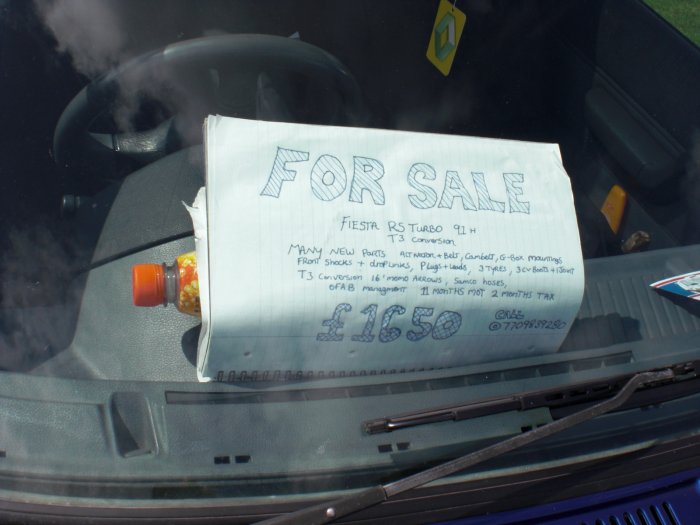 FOR SALE
FIESTA RS TURBO 91 H
T3 conversion
MANY NEW PARTS ALTNATOR + Belt, Cambelt, G-Box mountings
FRONT SHOCKS + dropLinks, Plugs + Leads, 3 TYRES, 3 CV Boots + 1 Joint
T3 Conversion 16" memo ARROWS, Samco hoses,
managment 11 MONTHS MOT 2 MONTHS TAX
£1650
CALL